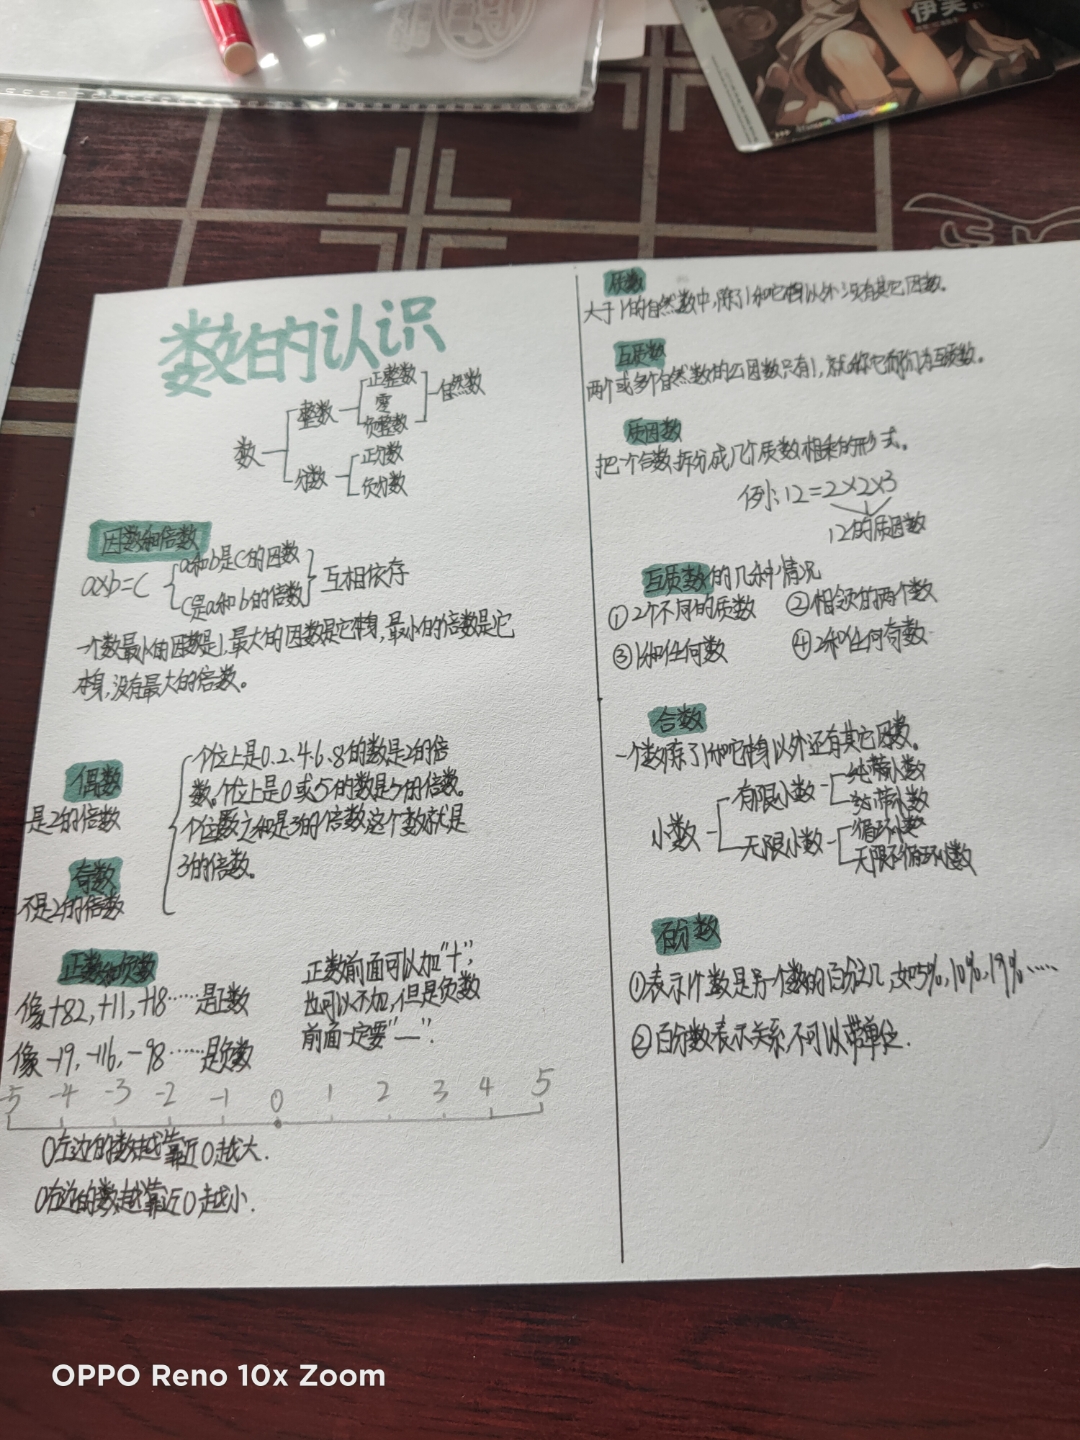 伊芙
数的认识
数
整数
正整数
零
负整数
自然数
分数
正分数
负分数
因数和倍数
a×b=c
a和b是c的因数
c是a和b的倍数
互相依存
一个数最小的因数是1,最大的因数是它本身,最小的倍数是它
本身,没有最大的倍数。
偶数
是2的倍数
奇数
不是2的倍数
个位上是0.2.4.6.8的数是2的倍
数。个位上是0或5的数是5的倍数。
个位数之和是3的倍数这个数就是
3的倍数。
正数和负数
像+82,+11,+18……是正数
像-19,-116,-98……是负数
正数前面可以加"+",
也可以不加,但是负数
前面一定要"—".
-5 -4 -3 -2 -1 0 1 2 3 4 5
0左边的数越靠近0越大.
0右边的数越靠近0越小.
质数
大于1的自然数中,除了1和它本身以外没有其它因数。
互质数
两个或多个自然数的公因数只有1,就称它们为互质数。
质因数
把一个合数拆分成几个质数相乘的形式。
例:12=2×2×3
12的质因数
互质数的几种情况
①2个不同的质数
②相邻的两个数
③1和任何数
④2和任何奇数
合数
一个数除了1和它本身以外还有其它因数。
小数
有限小数
纯带小数
无限小数
循环小数
无限不循环小数
百分数
①表示一个数是另一个数的百分之几,如5%,10%,19%……
②百分数表示关系,不可以带单位.
OPPO Reno 10x Zoom